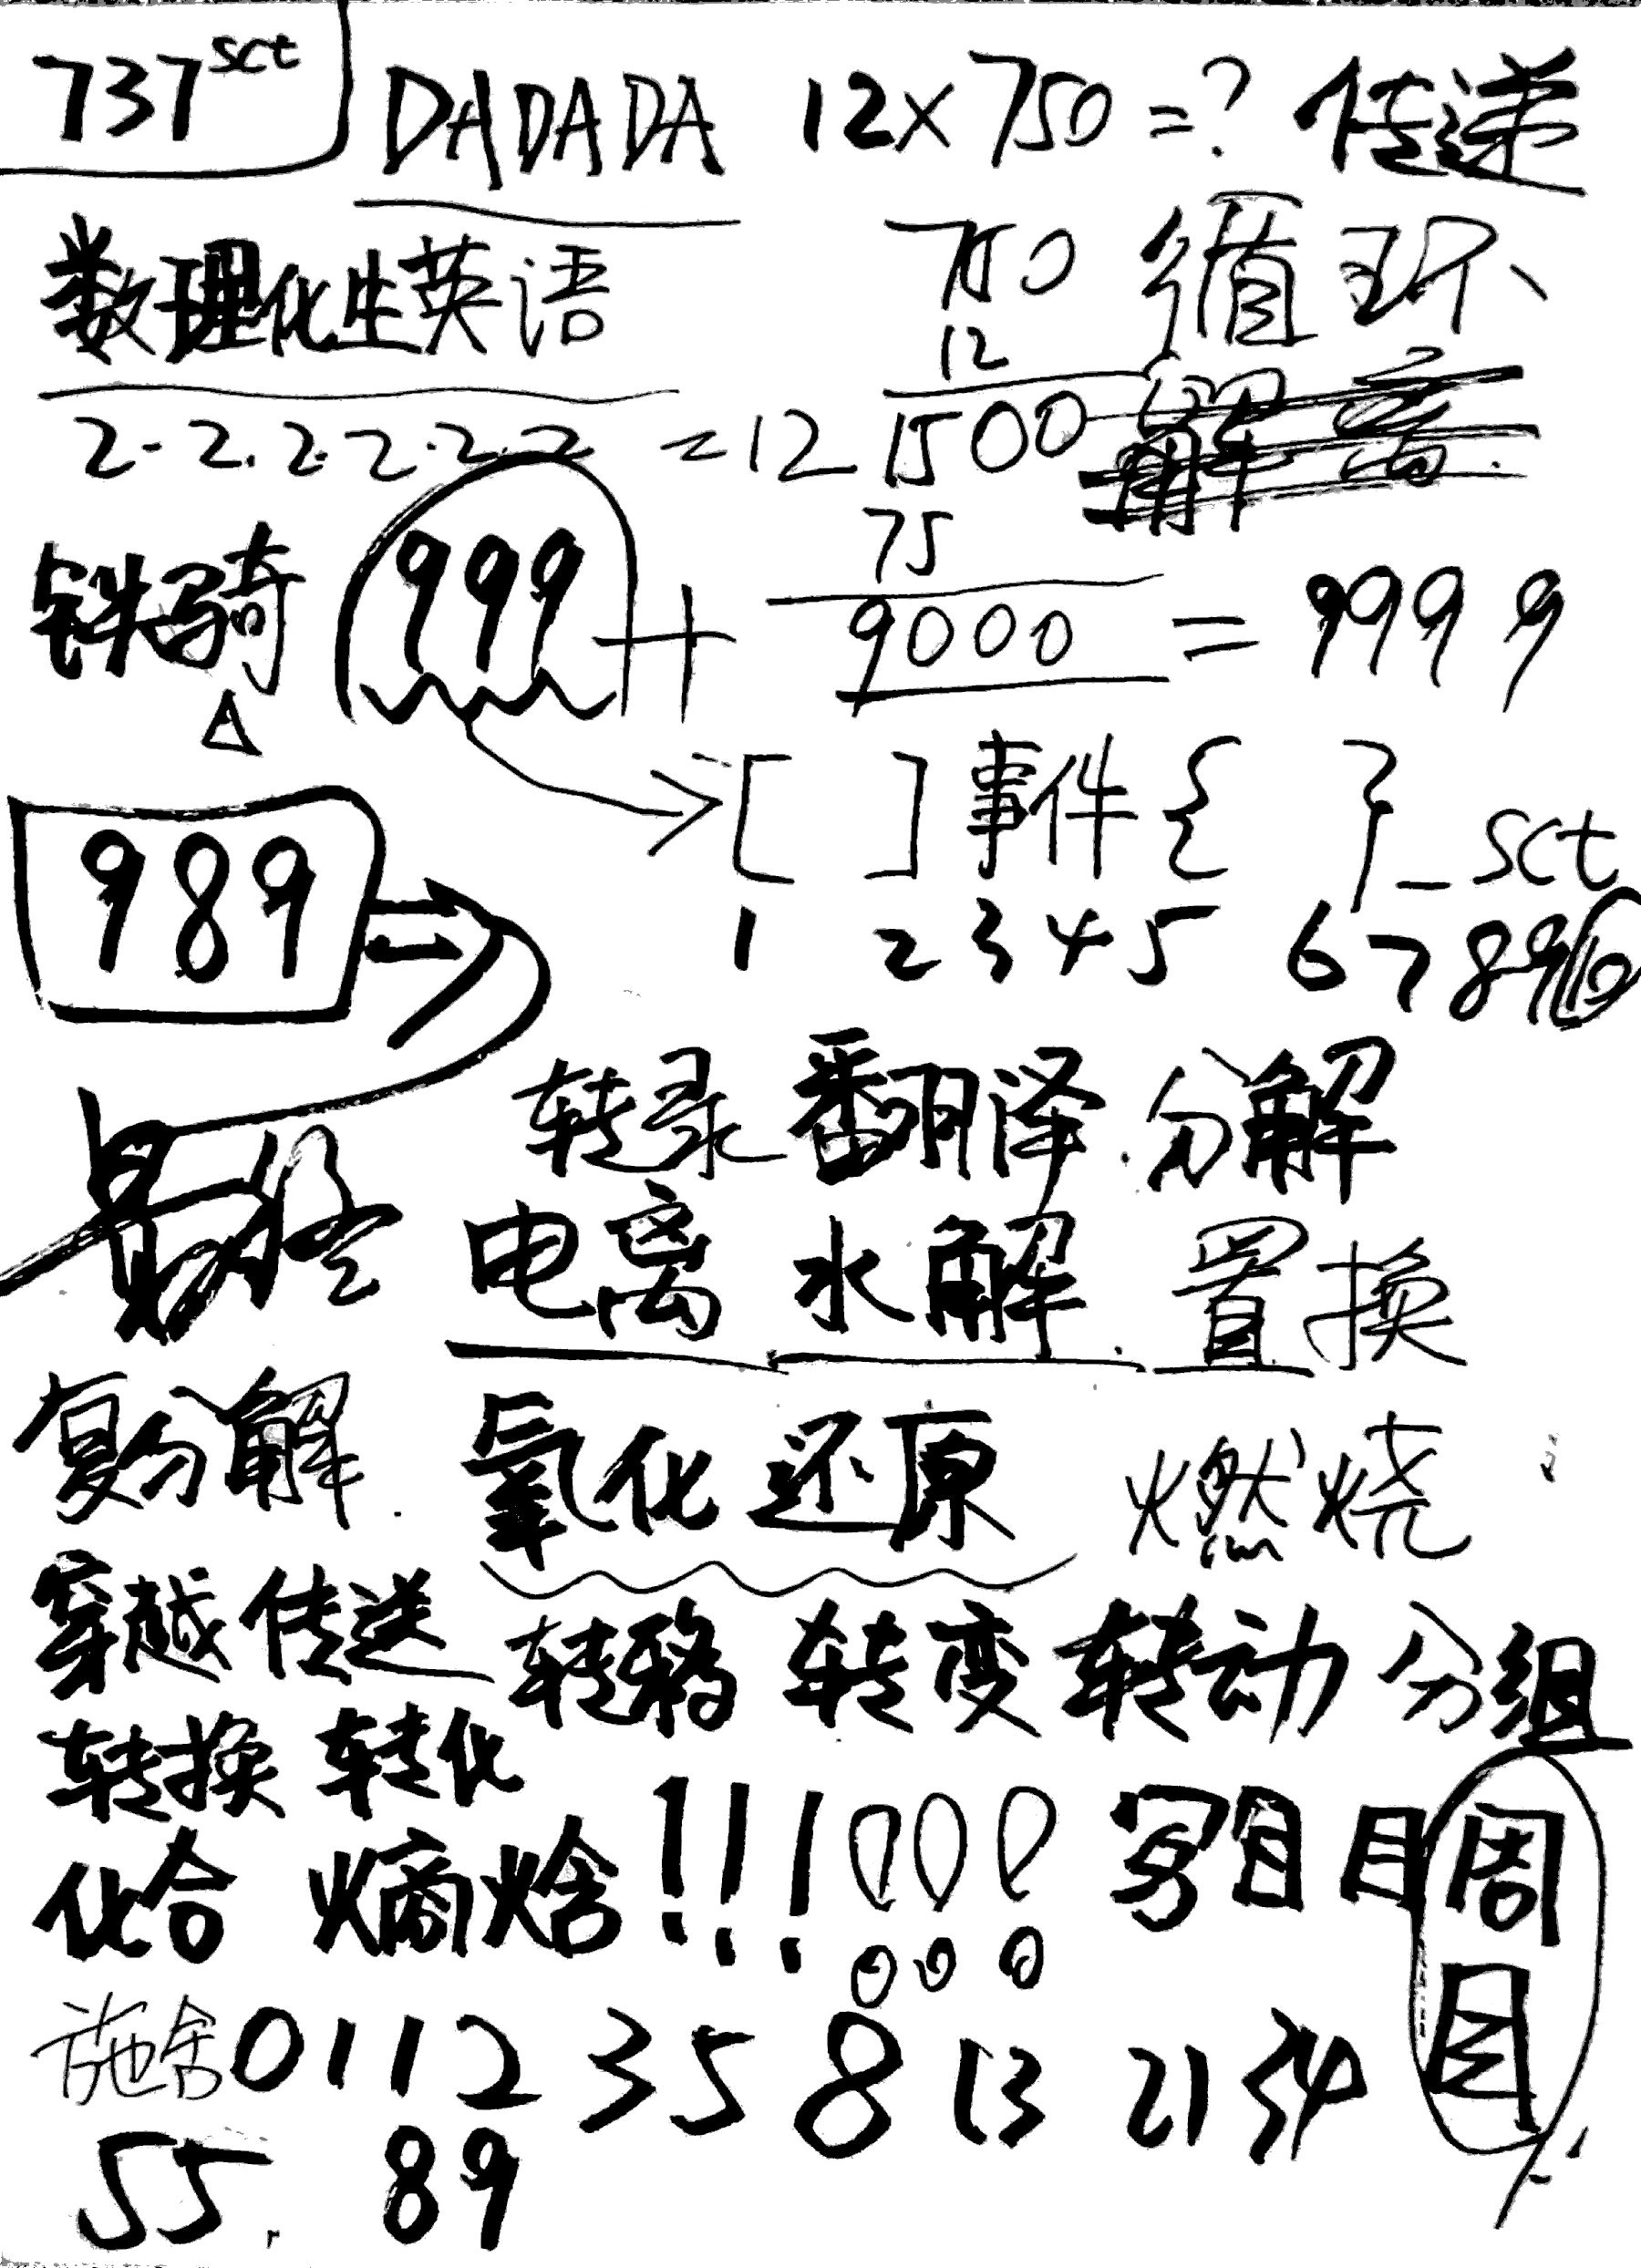 737 sct DADADA 12×750=? 传递
数理化生英语 750 循环
12
2.2.2.2.2.2 =12 1500
75
铁骑 999 + 9000 = 9999
△
[ ] 事件 { }_sct
989 →
1 2 3 4 5 6 7 8 9 10
转录 翻译 分解
最终 电离 水解 置换
复分解 氧化还原 燃烧
穿越 传送 转移 转变 转动 分组
转换 转化
化合 熵焓!!! 目目周
目
施舍 0 1 1 2 3 5 8 13 21 34
55. 89